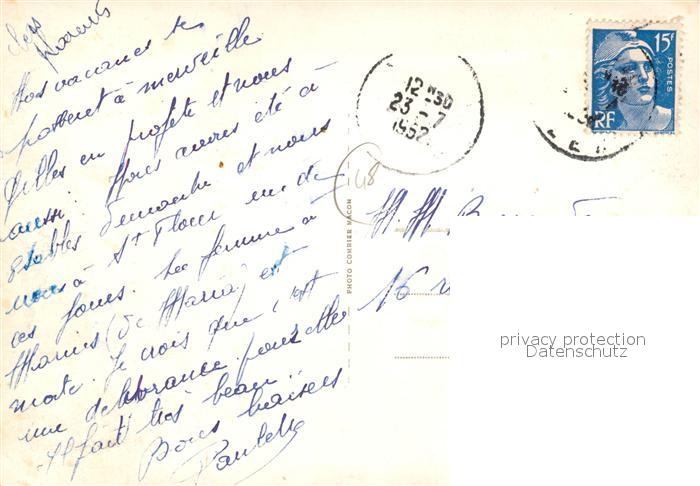 Chers
parents
Nos vacances se
passent à merveille.
Gilles en profite et nous
aussi. Nous avons été à
Etables dimanche et nous
irons à St Flour un de
ces jours. La femme à
Marius (de Maria) est
morte. Je crois que c'est
une délivrance pour elle
Il fait très beau.
Bons baisers
Paulette
12 H30
23 - 7
1952
15F
POSTES
RF
1418
PHOTO COMBIER MACON
M. M.
16
privacy protection
Datenschutz